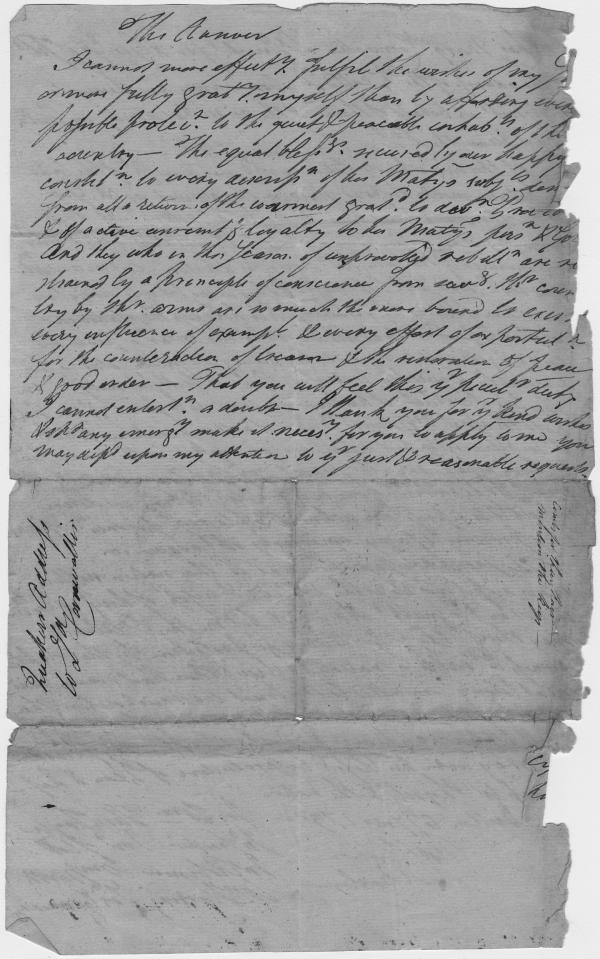 The Answer
I cannot more effect.y fulfil the wishes of my
or more fully grat.y myself than by affording every
possible protec.n to the quiet & peaceable inhab.ts of the
country — The equal bless.gs secured by our happy
constit.n to every descrip.n of his Matys subj.ts
from all a return of the warmest grat.d to
& of active unremit.g loyalty to his Matys pers.n &
And they who in this season of unprovoked rebell.n are re
strained by a principle of conscience from serv.g thr coun
try by thr arms are so much the more bound to exert
every influence of exampl. & every effort of expostul.n
for the counteraction of treason & the restoration of peace
& good order — That you will feel this yr peculr duty
I cannot entert.n a doubt — I thank you for yr kind wishes
& shd any emerg.y make it neces.y for you to apply to me you
may depd upon my attention to yr just & reasonable requests
Quakers Address
to Ld Cornwallis